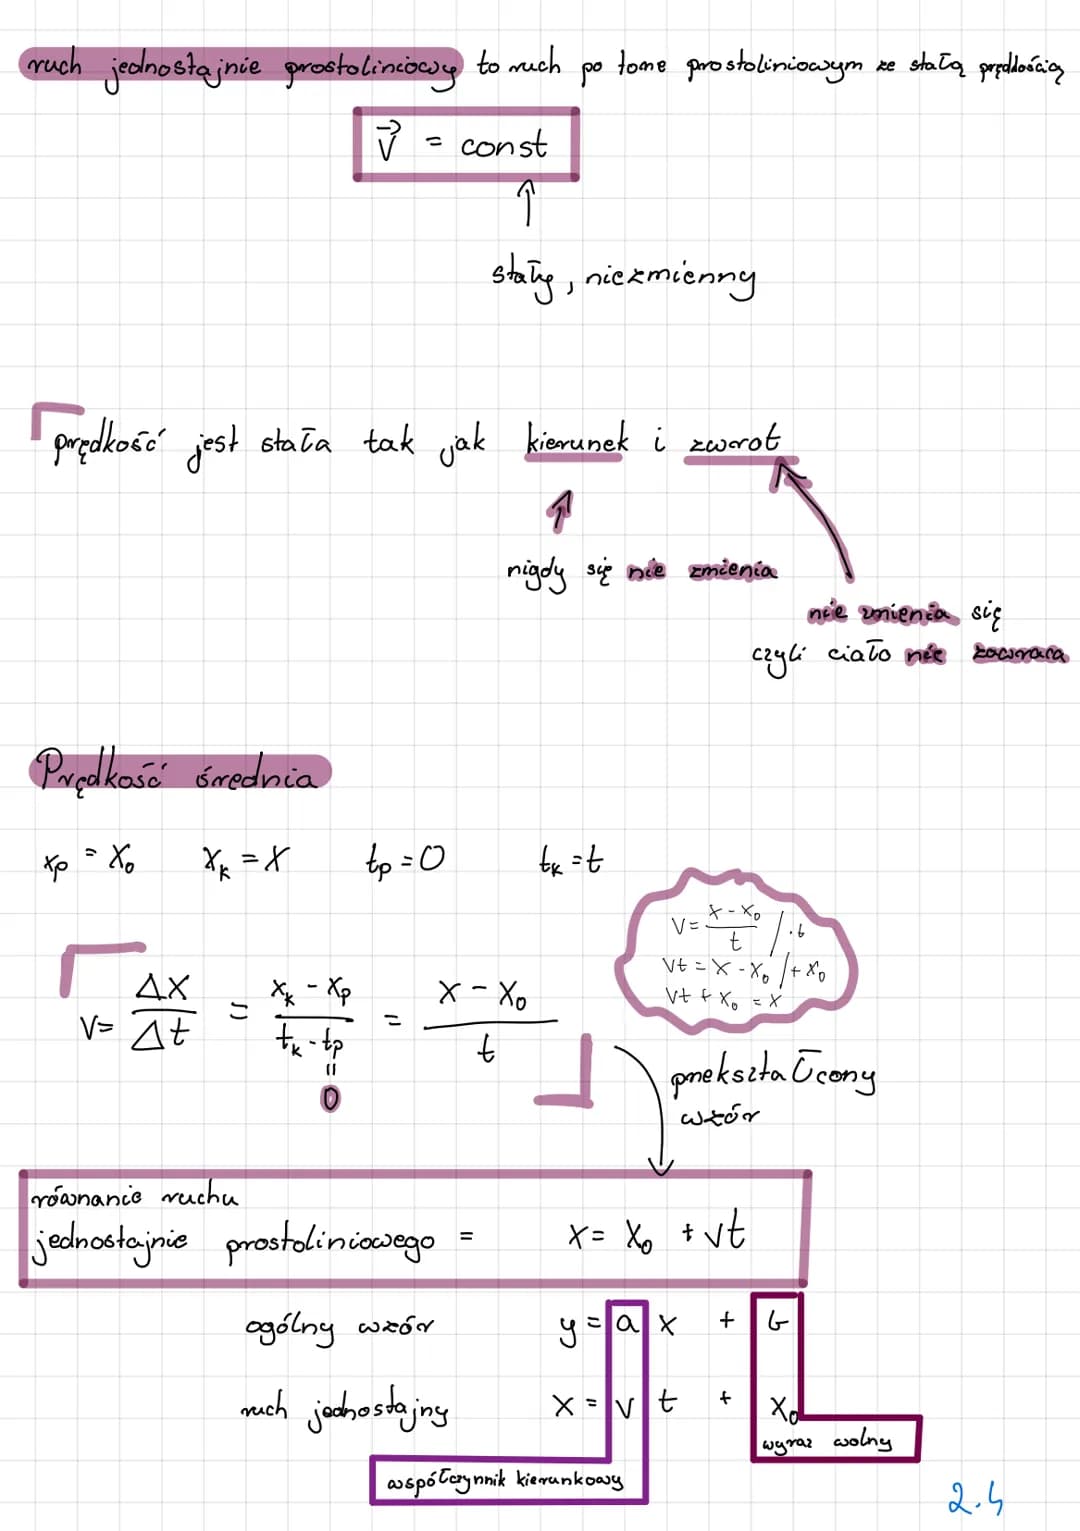 ruch jednostajnie prostoliniowy to ruch po torze prostoliniowym ze stałą prędkością
v⃗ = const
↑
stały, niezmienny
prędkość jest stała tak jak kierunek i zwrot
nigdy się nie zmienia
nie zmienia się
czyli ciało nie zawraca
Prędkość średnia
xp = x₀ xk = x tp = 0 tk = t
v = x - x₀ / t /·t
vt = x - x₀ /+ x₀
vt + x₀ = x
v = Δx / Δt = xk - xp / tk - tp = x - x₀ / t
=
0
przekształcony
wzór
równanie ruchu
jednostajnie prostoliniowego = x = x₀ + vt
ogólny wzór y = a x + b
ruch jednostajny x = v t + x₀
wyraz wolny
współczynnik kierunkowy
2.4